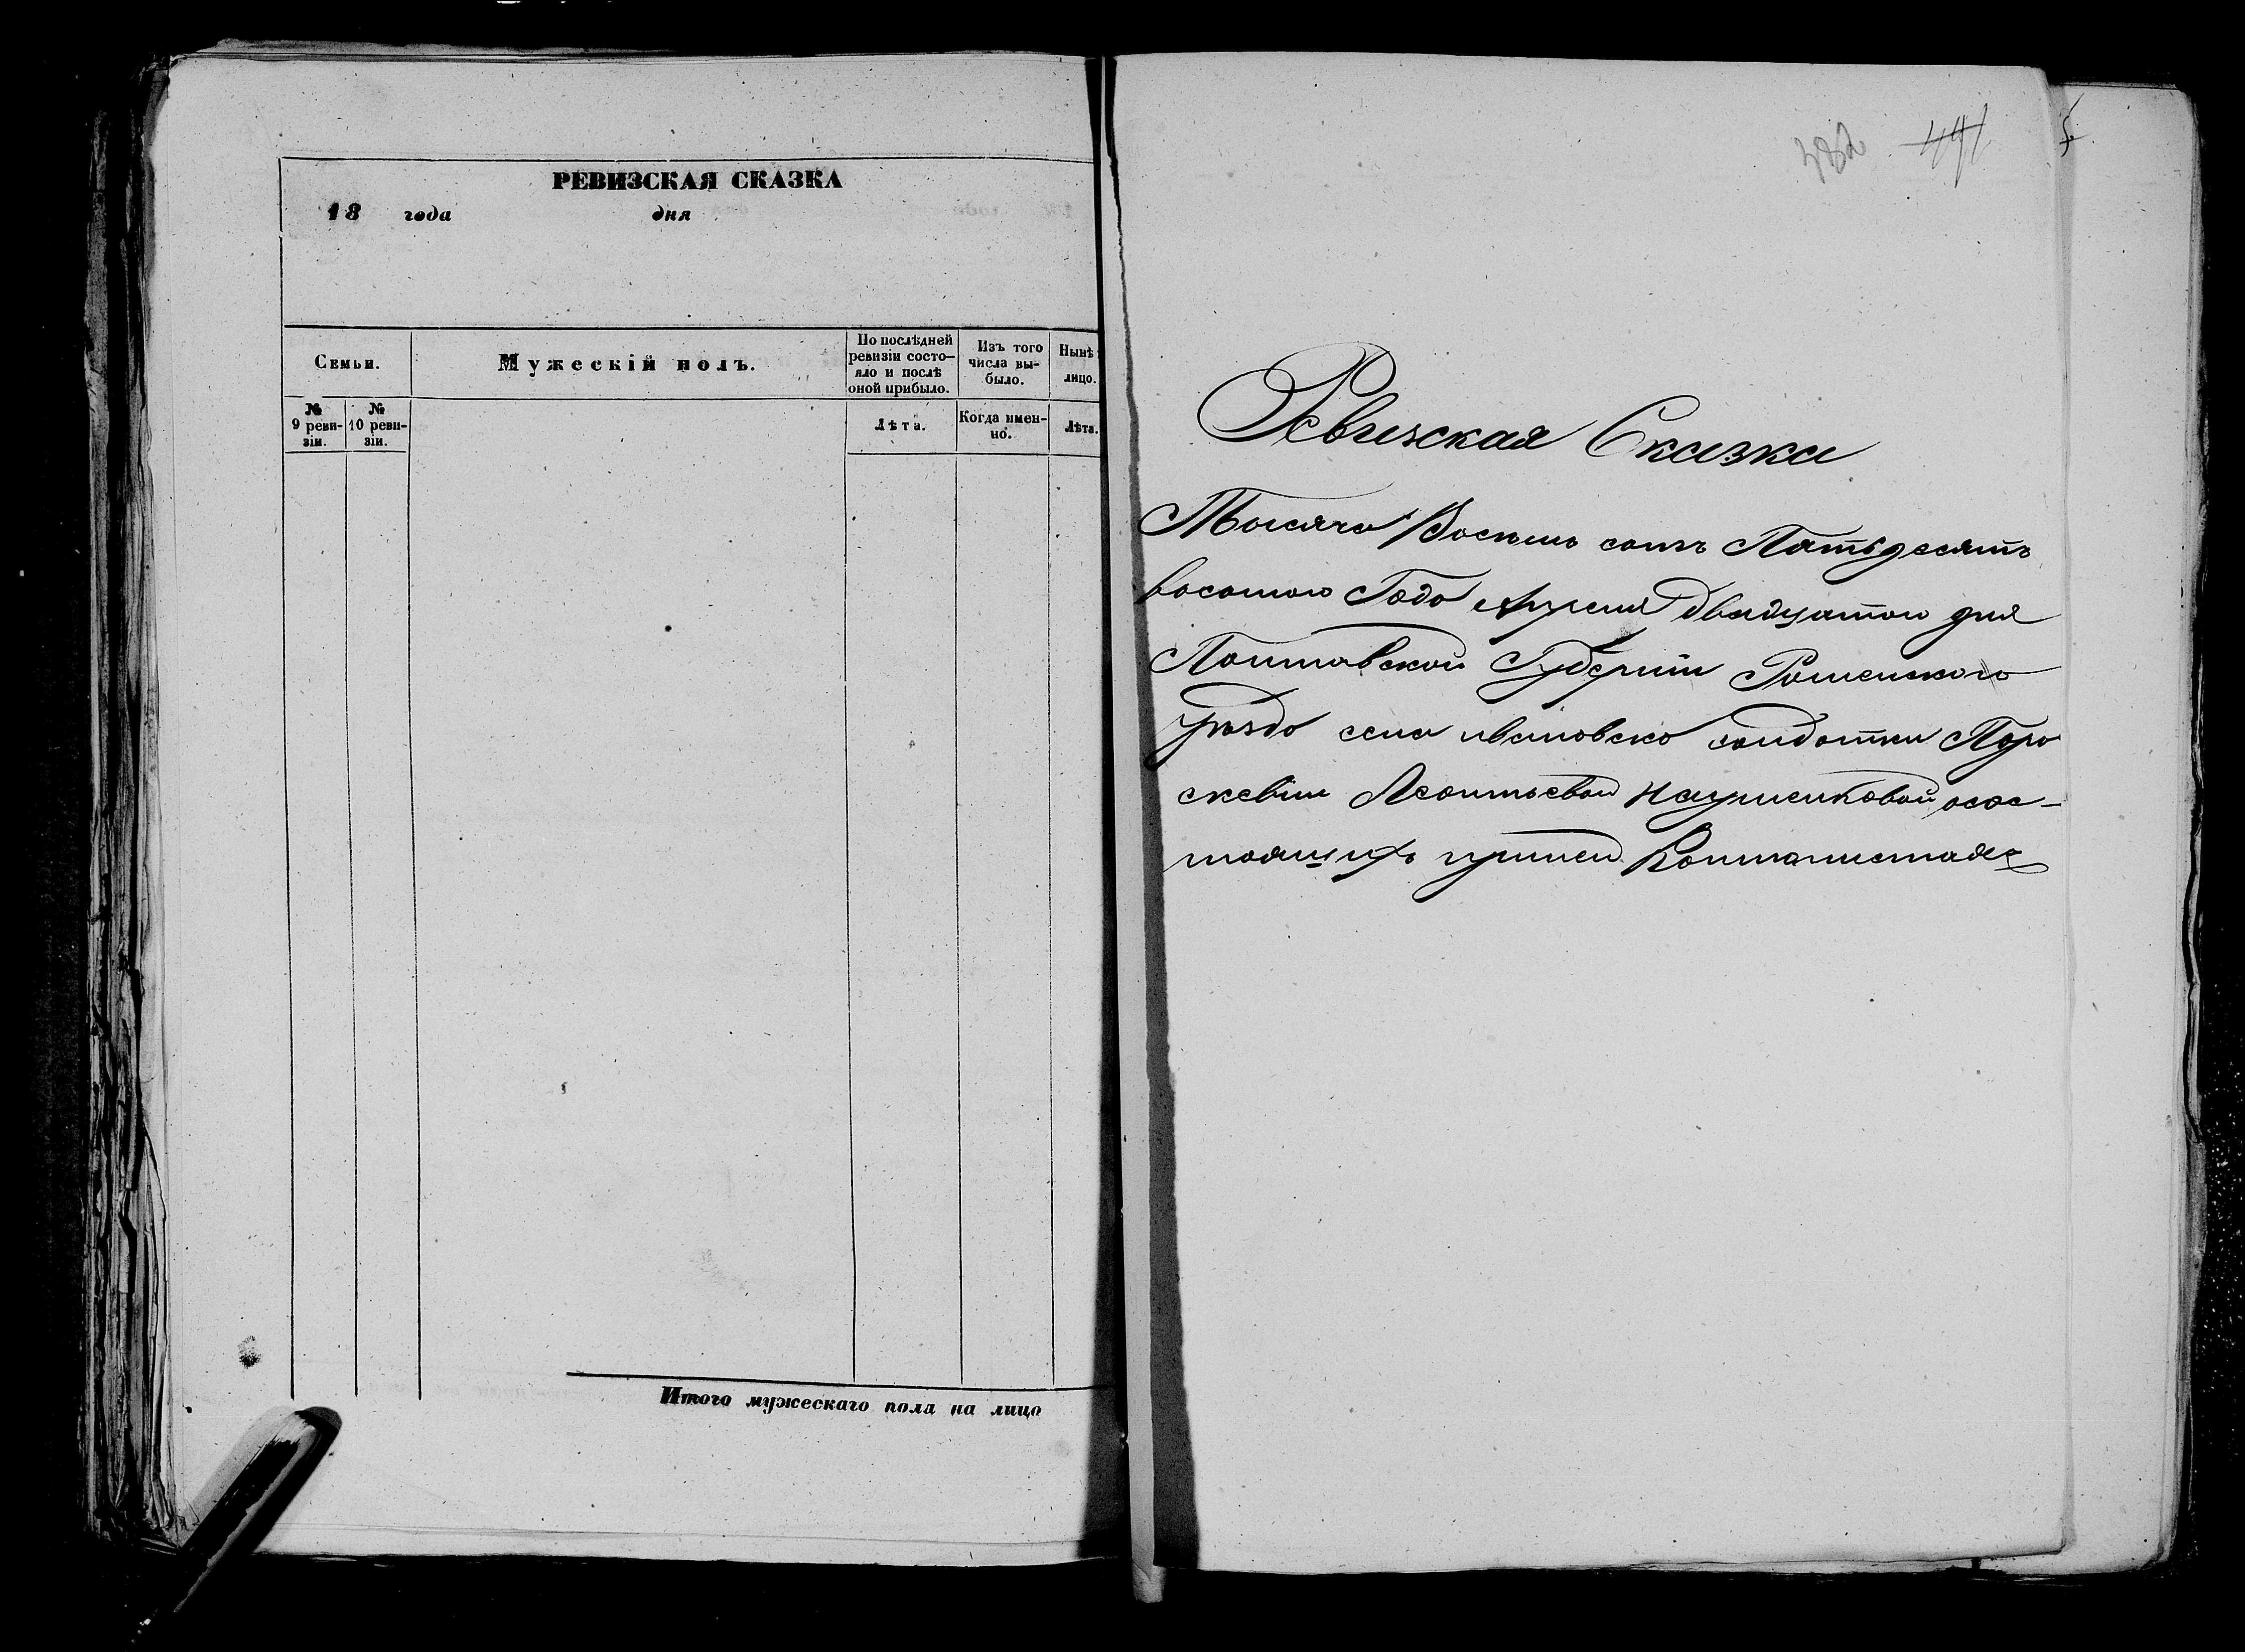 РЕВИЗСКАЯ СКАЗКА
18 года дня
Семьи.
Мужескій полъ.
По послѣдней ревизіи состо-
яло и послѣ
оной прибыло.
Изъ того
числа вы-
было.
Нынѣ
лицо.
№
9 реви-
зіи.
№
10 реви-
зіи.
Лѣта.
Когда имен-
но.
Лѣта.
Итого мужескаго пола на лицо
382 491
Ревизская Сказка
Тысяча Восемь сотъ Пятьдесятъ
восомого Года Апреля двадцатого дня
Полтавской Губерніи Роменского
уѣзда села ивановско солдатки Пара
скевіи Леонтьевой Науменковой осос-
тоящихъ приней Контанистахъ